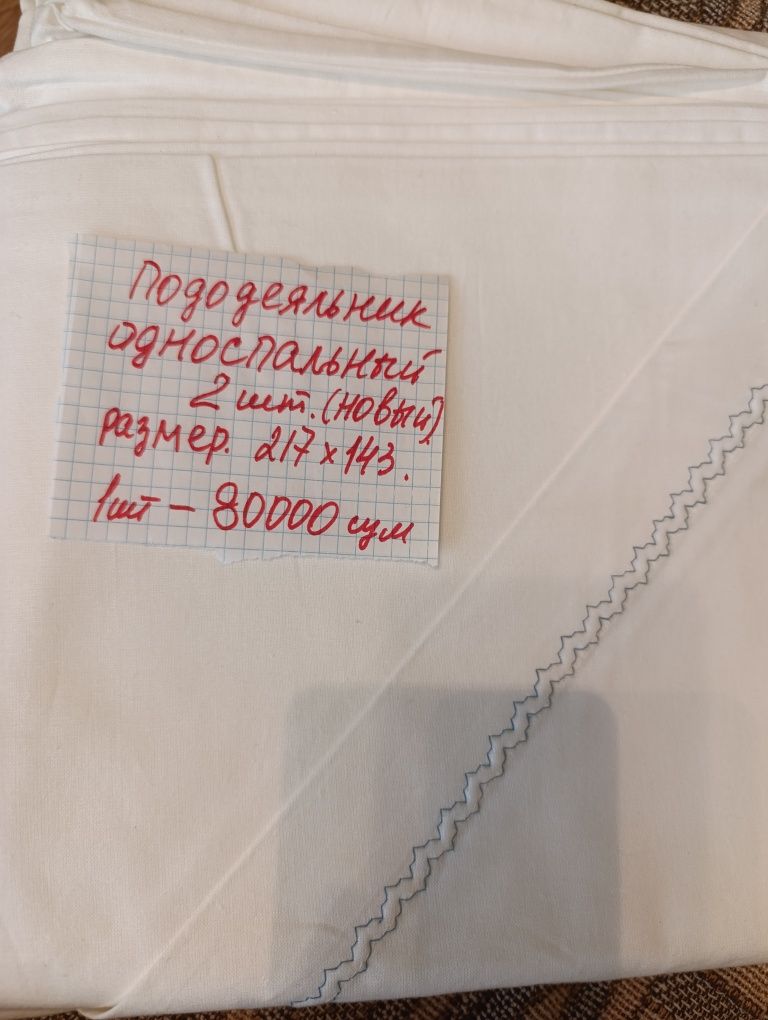 Пододеяльник
односпальный
2 шт. (новый)
размер. 217 х 143.
1шт – 80000 сум